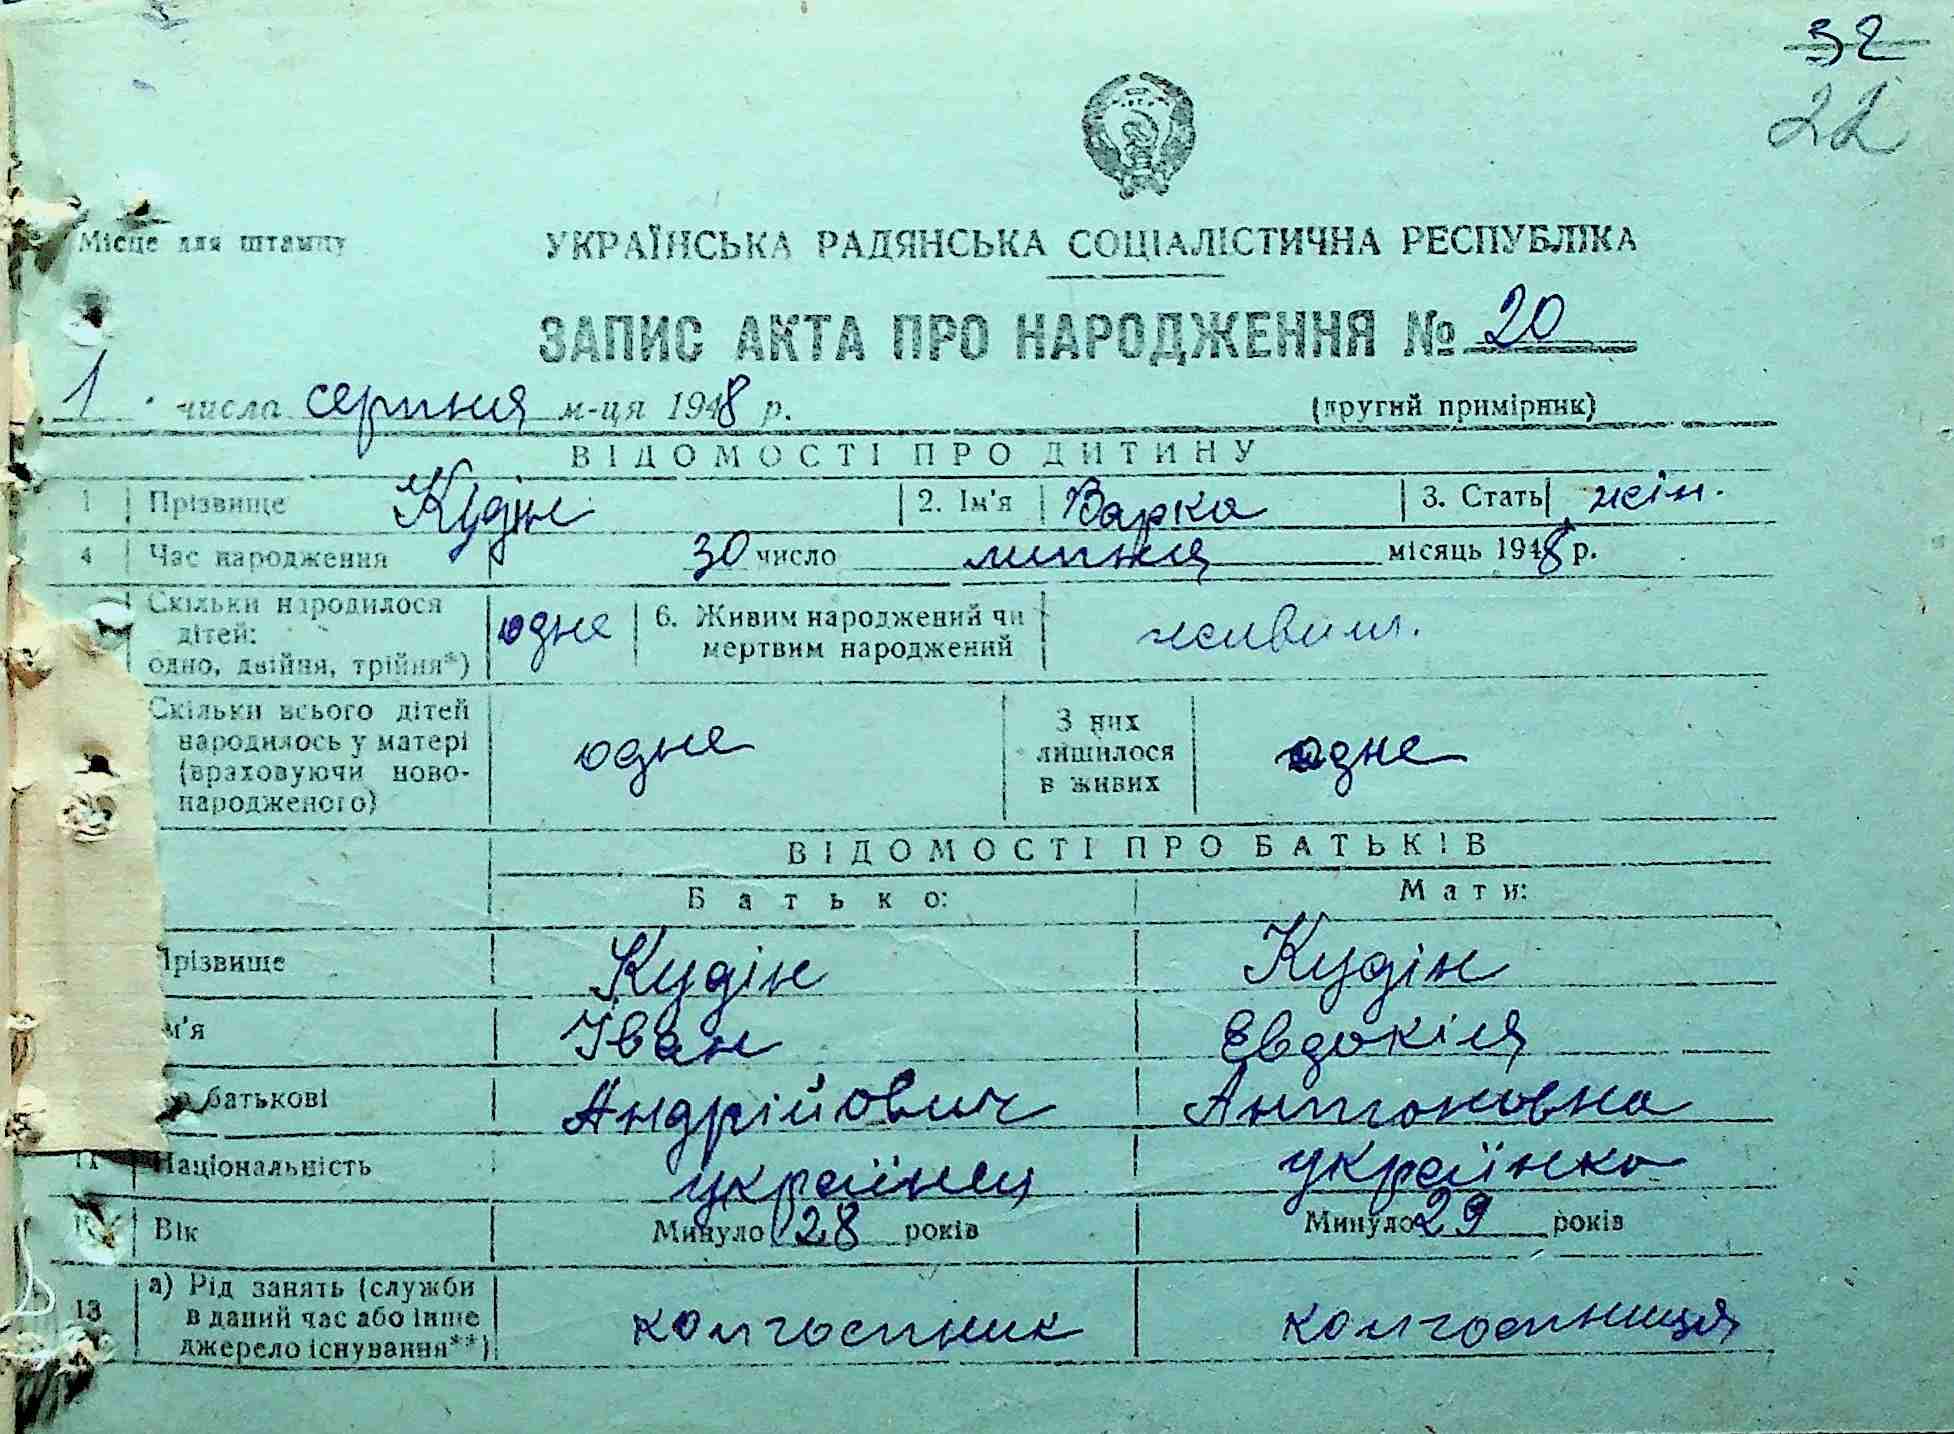 32
22
Місце для штампу
УКРАЇНСЬКА РАДЯНСЬКА СОЦІАЛІСТИЧНА РЕСПУБЛІКА
ЗАПИС АКТА ПРО НАРОДЖЕННЯ № 20
1 числа серпня м-ця 1948 р. (другий примірник)
ВІДОМОСТІ ПРО ДИТИНУ
1 Прізвище Кудін 2. Ім'я Варка 3. Стать жін.
4 Час народження 30 число липня місяць 1948 р.
Скільки народилося
дітей: одне 6. Живим народжений чи живим.
одно, двійня, трійня*) мертвим народжений
Скільки всього дітей З них
народилось у матері одне лишилося одне
(враховуючи ново- в живих
народженого)
ВІДОМОСТІ ПРО БАТЬКІВ
Батько: Мати:
Прізвище Кудін Кудін
м'я Іван Евдокія
батькові Андрійович Антоновна
11 Національність українец українка
Вік Минуло 28 років Минуло 29 років
13 а) Рід занять (служби
в даний час або інше колгоспник колгоспниця
джерело існування**)